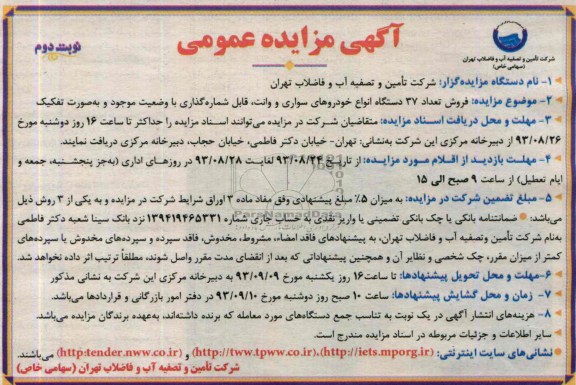 آگهی مزایده عمومی
نوبت دوم
شرکت تأمین و تصفیه آب و فاضلاب تهران
(سهامی خاص)
۱- نام دستگاه مزایده‌گزار: شرکت تأمین و تصفیه آب و فاضلاب تهران
۲- موضوع مزایده: فروش تعداد ۳۷ دستگاه انواع خودروهای سواری و وانت، قابل شماره‌گذاری با وضعیت موجود و به‌صورت تفکیک
۳- مهلت و محل دریافت اسناد مزایده: متقاضیان شرکت در مزایده می‌توانند اسناد مزایده را حداکثر تا ساعت ۱۶ روز دوشنبه مورخ
۹۳/۰۸/۲۶ از دبیرخانه مرکزی این شرکت به‌نشانی: تهران- خیابان دکتر فاطمی، خیابان حجاب، دبیرخانه مرکزی دریافت نمایند.
۴- مهلت بازدید از اقلام مورد مزایده: از تاریخ ۹۳/۰۸/۲۴ لغایت ۹۳/۰۸/۲۸ در روزهای اداری (به‌جز پنجشنبه، جمعه و
ایام تعطیل) از ساعت ۹ صبح الی ۱۵
۵- مبلغ تضمین شرکت در مزایده: به میزان ۵٪ مبلغ پیشنهادی وفق مفاد ماده ۳ اوراق شرایط شرکت در مزایده و به یکی از ۳ روش ذیل
می‌باشد: ● ضمانتنامه بانکی یا چک بانکی تضمینی یا واریز نقدی به حساب جاری شماره ۱۳۹۴۱۹۴۶۵۳۳۱ نزد بانک سینا شعبه دکتر فاطمی
به‌نام شرکت تأمین وتصفیه آب و فاضلاب تهران، به پیشنهادهای فاقد امضاء، مشروط، مخدوش، فاقد سپرده و سپرده‌های مخدوش یا سپرده‌های
کمتر از میزان مقرر، چک شخصی و نظایر آن و همچنین پیشنهاداتی که بعد از انقضای مدت مقرر واصل شوند، مطلقاً ترتیب اثر داده نخواهد شد.
۶- مهلت و محل تحویل پیشنهادها: تا ساعت ۱۶ روز یکشنبه مورخ ۹۳/۰۹/۰۹ به دبیرخانه مرکزی این شرکت به نشانی مذکور
۷- زمان و محل گشایش پیشنهادها: ساعت ۱۰ صبح روز دوشنبه مورخ ۹۳/۰۹/۱۰ در دفتر امور بازرگانی و قراردادها می‌باشد.
۸- هزینه‌های انتشار آگهی در یک نوبت به تناسب جمع دستگاه‌های مورد معامله که برنده داشته‌اند، به‌عهده برندگان مزایده می‌باشد.
● سایر اطلاعات و جزئیات مربوطه در اسناد مزایده مندرج است.
● نشانی‌های سایت اینترنتی: (http://iets.mporg.ir)، (http://tww.tpww.co.ir) و (http:tender.nww.co.ir) می‌باشند.
شرکت تأمین و تصفیه آب و فاضلاب تهران (سهامی خاص)